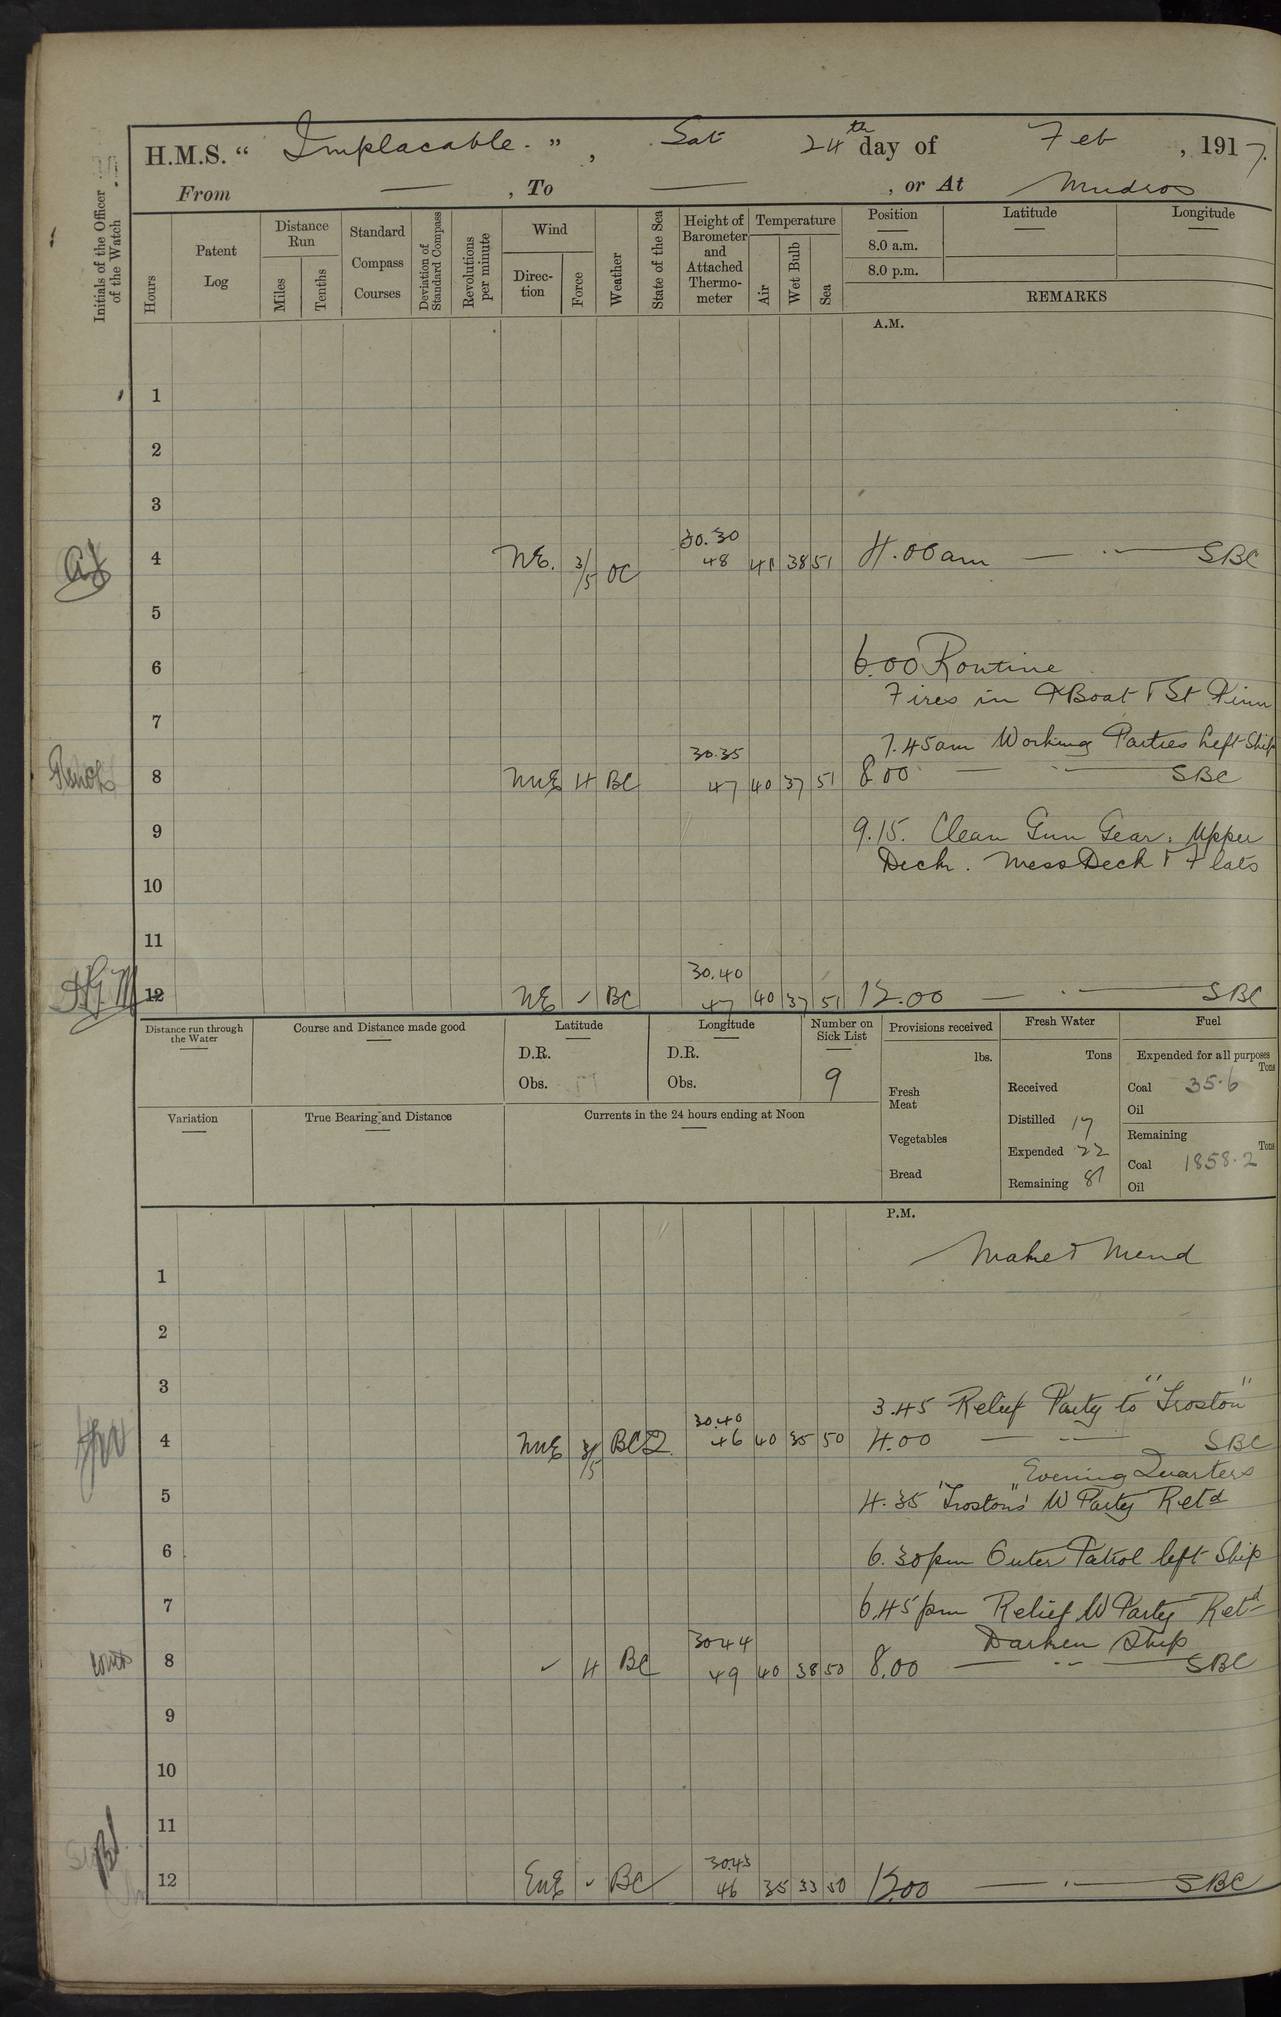 H.M.S. " Implacable. ", Sat 24th day of Feb, 1917.
From — , To — , or At Mudros
Initials of the Officer of the Watch
Hours
Patent Log
Distance Run
Miles
Tenths
Standard Compass Courses
Deviation of Standard Compass
Revolutions per minute
Wind
Direc-tion
Force
Weather
State of the Sea
Height of Barometer and Attached Thermo-meter
Temperature
Air
Wet Bulb
Sea
Position
8.0 a.m.
8.0 p.m.
Latitude
Longitude
REMARKS
A.M.
1
2
3
4 NE. 3/5 OC 30.30 48 41 38 51 4.00am — · — SBC
5
6 6.00 Routine
Fires in & Boat & St Pinn
7
7.45am Working Parties Left Ship
8 NNE 4 BC 30.35 47 40 37 51 8.00 — · — SBC
9 9.15. Clean Gun Gear. Upper
Deck. Mess Deck & Flats
10
11
12 NE ✓ BC 30.40 47 40 37 51 12.00 — · — SBC
Distance run through the Water
Course and Distance made good
Latitude
D.R.
Obs.
Longitude
D.R.
Obs.
Number on Sick List
9
Provisions received
lbs.
Fresh Meat
Vegetables
Bread
Fresh Water
Tons
Received
Distilled 17
Expended 22
Remaining 81
Fuel
Expended for all purposes
Tons
Coal 35.6
Oil
Remaining
Tons
Coal 1858.2
Oil
Variation
True Bearing and Distance
Currents in the 24 hours ending at Noon
P.M.
Make & Mend
1
2
3
3.45 Relief Party to "Troston"
4 NNE 3/5 BCQ 30.40 46 40 35 50 4.00 — · — SBC
Evening Quarters
5 4.35 "Troston's" W Party Retd
6 6.30pm Outer Patrol left Ship
7 6.45pm Relief W Party Retd
Darken Ship
8 ✓ 4 BC 30.44 49 40 38 50 8.00 — · · — SBC
9
10
11
12 ENE ✓ BC 30.45 46 35 33 50 12.00 — · — SBC